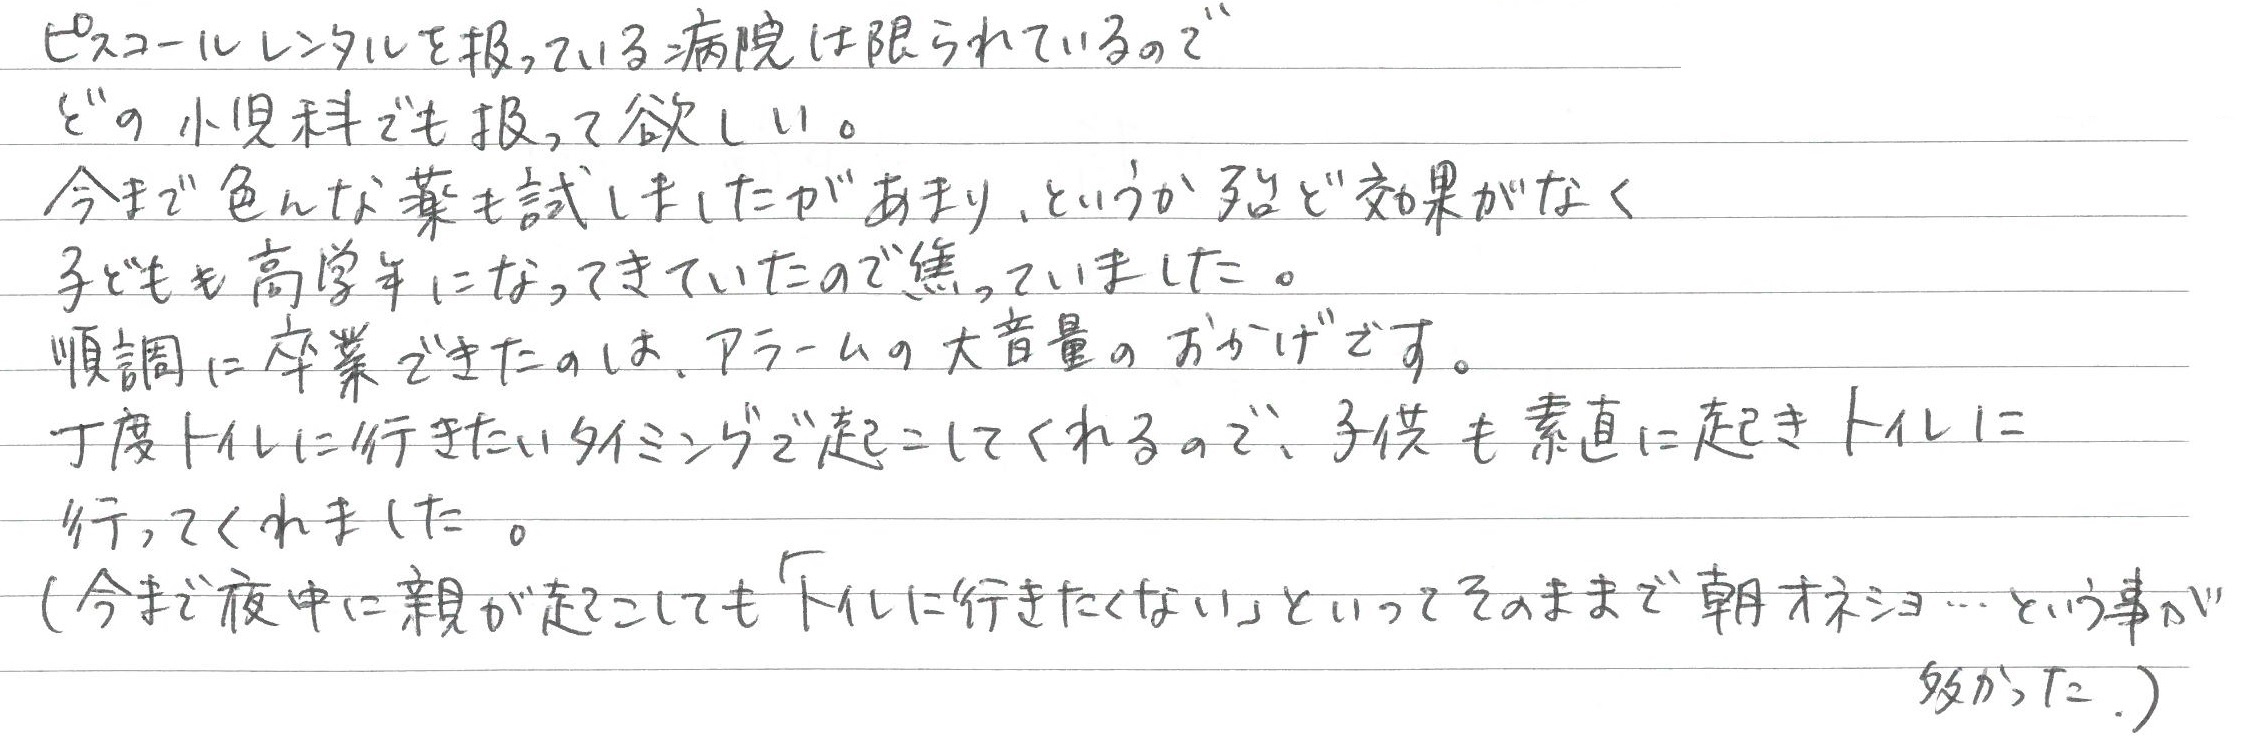 ピスコールレンタルを扱っている病院は限られているので
どの小児科でも扱って欲しい。
今まで色んな薬も試しましたがあまり、というか殆ど効果がなく
子どもも高学年になってきていたので焦っていました。
順調に卒業できたのは、アラームの大音量のおかげです。
丁度トイレに行きたいタイミングで起こしてくれるので、子供も素直に起きトイレに
行ってくれました。
(今まで夜中に親が起こしても「トイレに行きたくない」といってそのままで朝オネショ…という事が
多かった.)